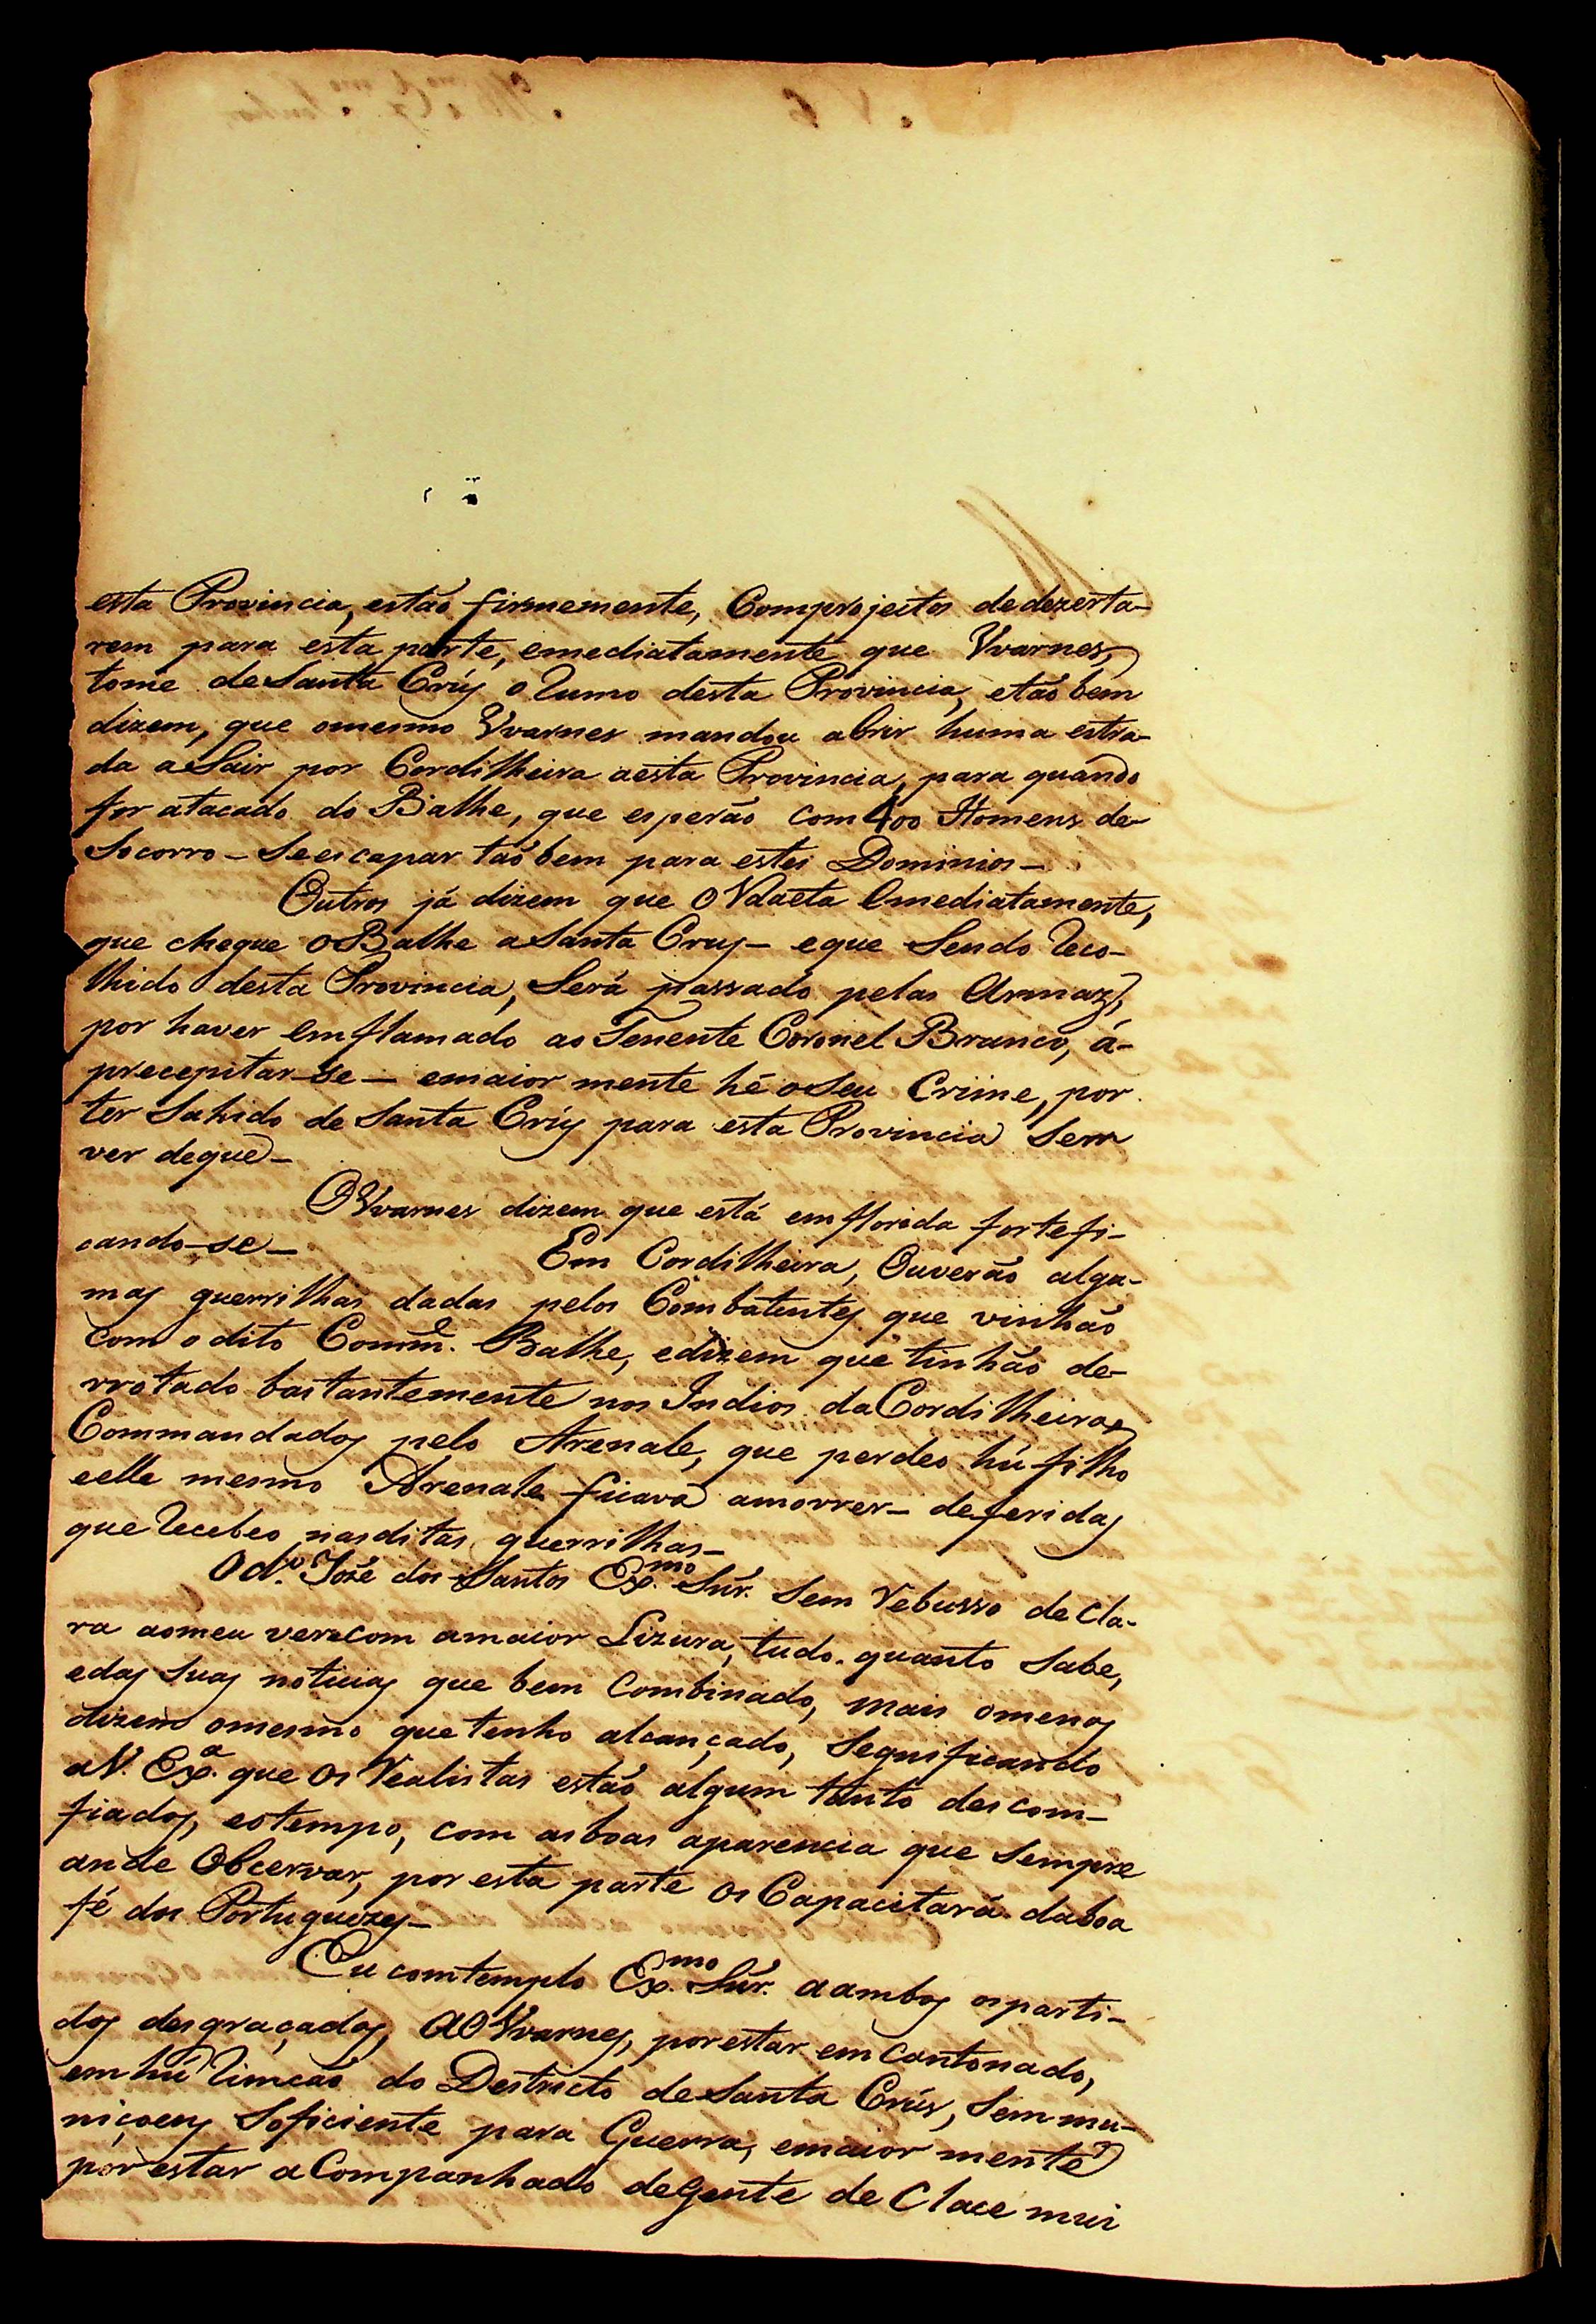 esta Provincia, estão firmemente, Comprojectos dedezerta-
rem para esta parte, emediatamente que Vvarnes,
tome de Santa Crúz o Rumo desta Provincia, etão bem
dizem, que omesmo Vvarnes mandou abrir huma estra-
da aSair por Cordilheira aesta Provincia, para quando
for atacado do Balhe, que esperão com 400 Homens de
Socorro - Seescapar tão bem para estes Dominios -
Outros já dizem que O Udaeta Emediatamente,
que chegue OBalhe aSanta Cruz - eque Sendo Reco-
lhido desta Provincia, Será passado pelas Armaz,
por haver emflamado ao Tenente Coronel Branco, á-
precepitar-se - emaior mente hé oSeu Crime, por
ter Sahido de Santa Crúz para esta Provincia Sem
ver deque -
OVvarnes dizem que está emflorida fortefi-
cando-se -
Em Cordilheira, Ouverão algu-
mas guerrilhas dadas pelos Combatentes que vinhão
com o dito Comm.e Balhe, edizem que tinhão de-
rrotado bastantemente nos Indios daCordilheira,
Commandados pelo Arenale, que perdeo hú filho
eelle mesmo Arenale ficava amorrer - deferidas
queRecebeo nasditas guerrilhas -
Od.o José dos Santos Ex.mo Snr. Sem Rebusso decla-
ra aomeu ver,ecom amaior Lizura, tudo quanto Sabe,
edas Suas noticias que bem Combinado, mais omenos
dizem omesmo que tenho alcançado, Seguificando
aV. Ex.a que Os Realistas estão algum tanto descom-
fiados, eotempo, com asboas aparencia que Sempre
ande Obcervar, por esta parte Os Capacitará daboa
fé dos Portuguezes -
Eu comtemplo Ex.mo Snr. aambos osparti-
dos desgraçados, AOVvarnes, porestar em Cantonado,
emhú Rimcão do Destricto deSanta Crúz, Sem mu-
niçoens Soficiente para Guerra, emaior mente
porestar aCompanhado deGente de Clace mui